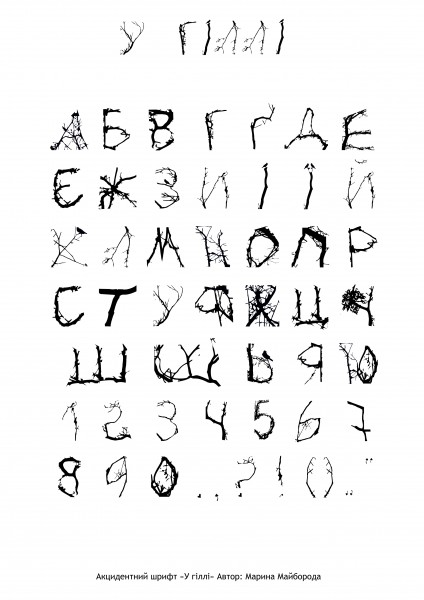 У ГІЛЛІ
А Б В Г Ґ Д Е
Є Ж З И І Ї Й
К Л М Н О П Р
С Т У Ф Х Ц Ч
Ш Щ Ь Я Ю
1 2 3 4 5 6 7
8 9 0 . , ? ! ( ) "
Акцидентний шрифт «У гіллі» Автор: Марина Майборода